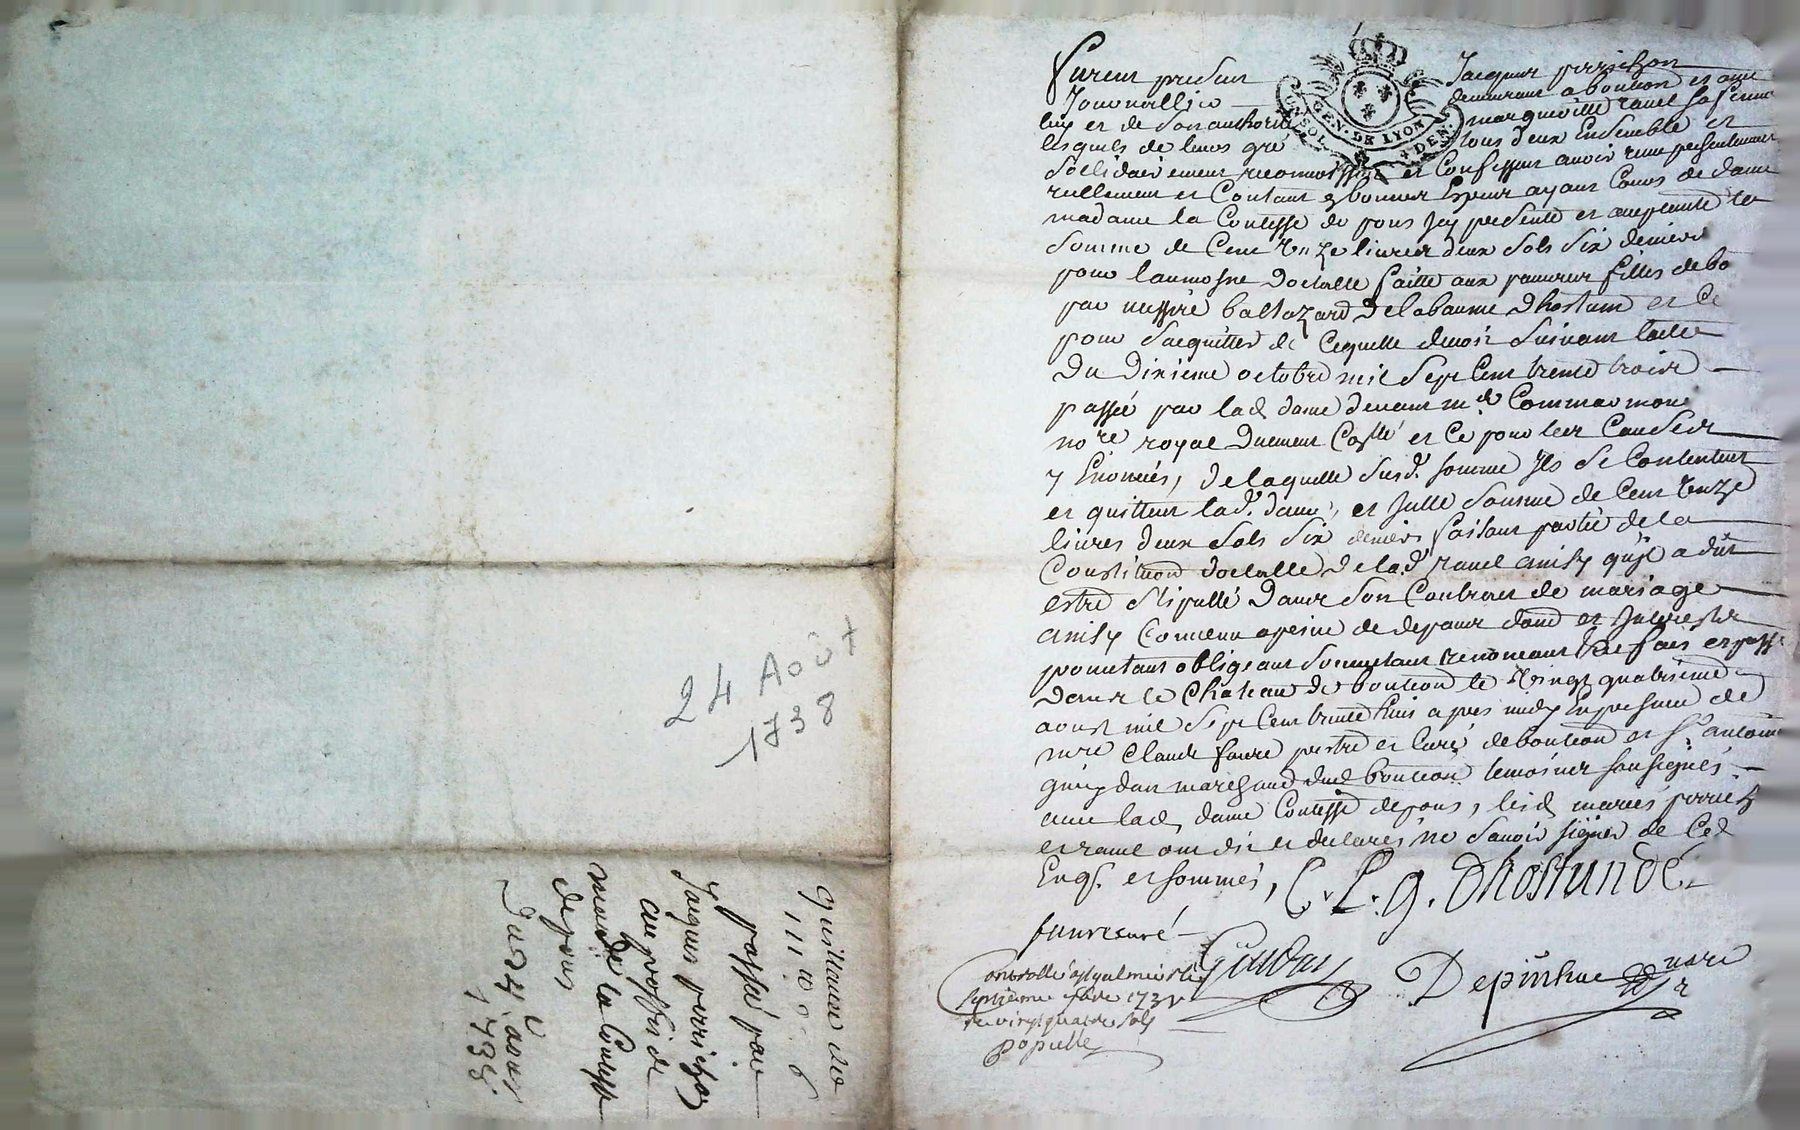 furent presens Jacques perrichon
demeurant a boution et
luy et de son authorité margueritte ravel sa femme
lesquels de leurs gré tous deux Ensemble et
sollidairement reconnoissent et Confessent avoir receu presentement
reellement et Contant en bonnes Especes ayant Cours de dame
madame la Contesse de pons Jcy presente et acceptante la
somme de Cent Unze livres deux sols six deniers
pour laumosne dotalle faitte aux pauvres filles de bo
par messire baltazard de labaume dhostun et Ce
pour sacquitter de Cequelle devoit suivant lacte
du dixieme octobre mil sept Cent trente trois
passée par lad. dame devant me Commarmont
nore royal duement Cosllé et Ce pour les Causes
y Enoncés, de laquelle susd. somme Jls se Contentent
et quittent lad. dame, et Jcelle somme de Cent Unze
livres deux sols six deniers faisant partie de la
Constitution dotalle de lad. ravel ainsy quil a dût
estre stipullé dans son Contract de mariage
ainsy Convenu a peine de depans dom et Jnterests
promettant obligeant soumettant renonceant &ce fait et passé
dans le Chateau de boution le vingt quatrieme
aoust mil sept Cent trente huit apres midy En presence de
mre Claude faure prestre et Curé de boution et sr. antoine
guiydan marchand dud. boution temoins sousignés
avec lad. dame Contesse de pons, lesd. mariés perrich
et ravel ont dit et declarés ne savoir signer de Ce
Enqs. et sommés, C. L. g. Dhostun DE
faure curé
Guidan
Depinhac nore
r
Controllé
septieme 173
vingt quatre sols
populle
GEN. DE LYON
24 Août
1738
quittance de
111 tt 2 s 6
passé par
Jacques perrichon
au proffit de
madᵉ la Contess
de pons
Du 24e aoust
1738.